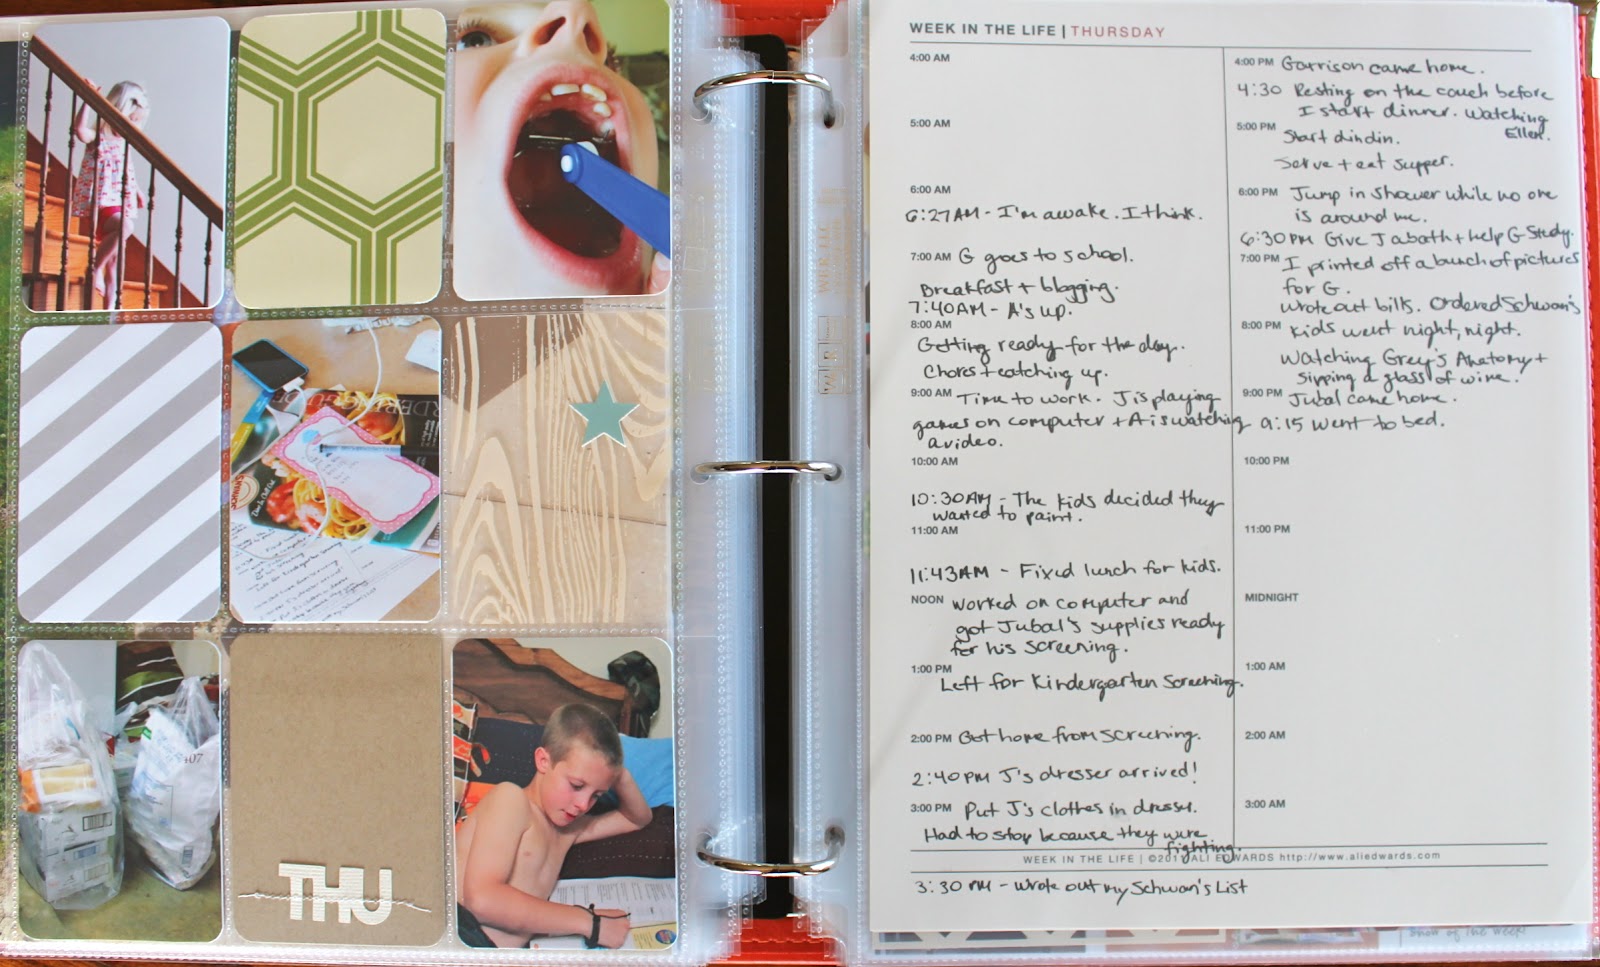 THU
WEEK IN THE LIFE | THURSDAY
4:00 AM
5:00 AM
6:00 AM
6:27AM - I'm awake. I think.
7:00 AM G goes to school.
Breakfast + blogging.
7:40AM - A's up.
8:00 AM
Getting ready for the day.
Chores + catching up.
9:00 AM Time to work. J is playing
games on computer + A is watching
a video.
10:00 AM
10:30AM - The kids decided they
wanted to paint.
11:00 AM
11:43AM - Fixed lunch for kids.
NOON Worked on computer and
got Jubal's supplies ready
for his screening.
1:00 PM
Left for Kindergarten Screening.
2:00 PM Got home from screening.
2:40PM J's dresser arrived!
3:00 PM Put J's clothes in dresser.
Had to stop because they were
fighting.
4:00 PM Garrison came home.
4:30 Resting on the couch before
I start dinner. Watching
Ellen.
5:00 PM Start dindin.
Serve + eat supper.
6:00 PM Jump in shower while no one
is around me.
6:30PM Give J a bath + help G study.
7:00 PM I printed off a bunch of pictures
for G.
Wrote out bills. Ordered Schwan's
8:00 PM Kids went night, night.
Watching Grey's Anatomy +
sipping a glass of wine.
9:00 PM Jubal came home.
9:15 Went to bed.
10:00 PM
11:00 PM
MIDNIGHT
1:00 AM
2:00 AM
3:00 AM
WEEK IN THE LIFE | ©201 ALI EDWARDS http://www.aliedwards.com
3:30 PM - Wrote out my Schwan's List
show of the week!